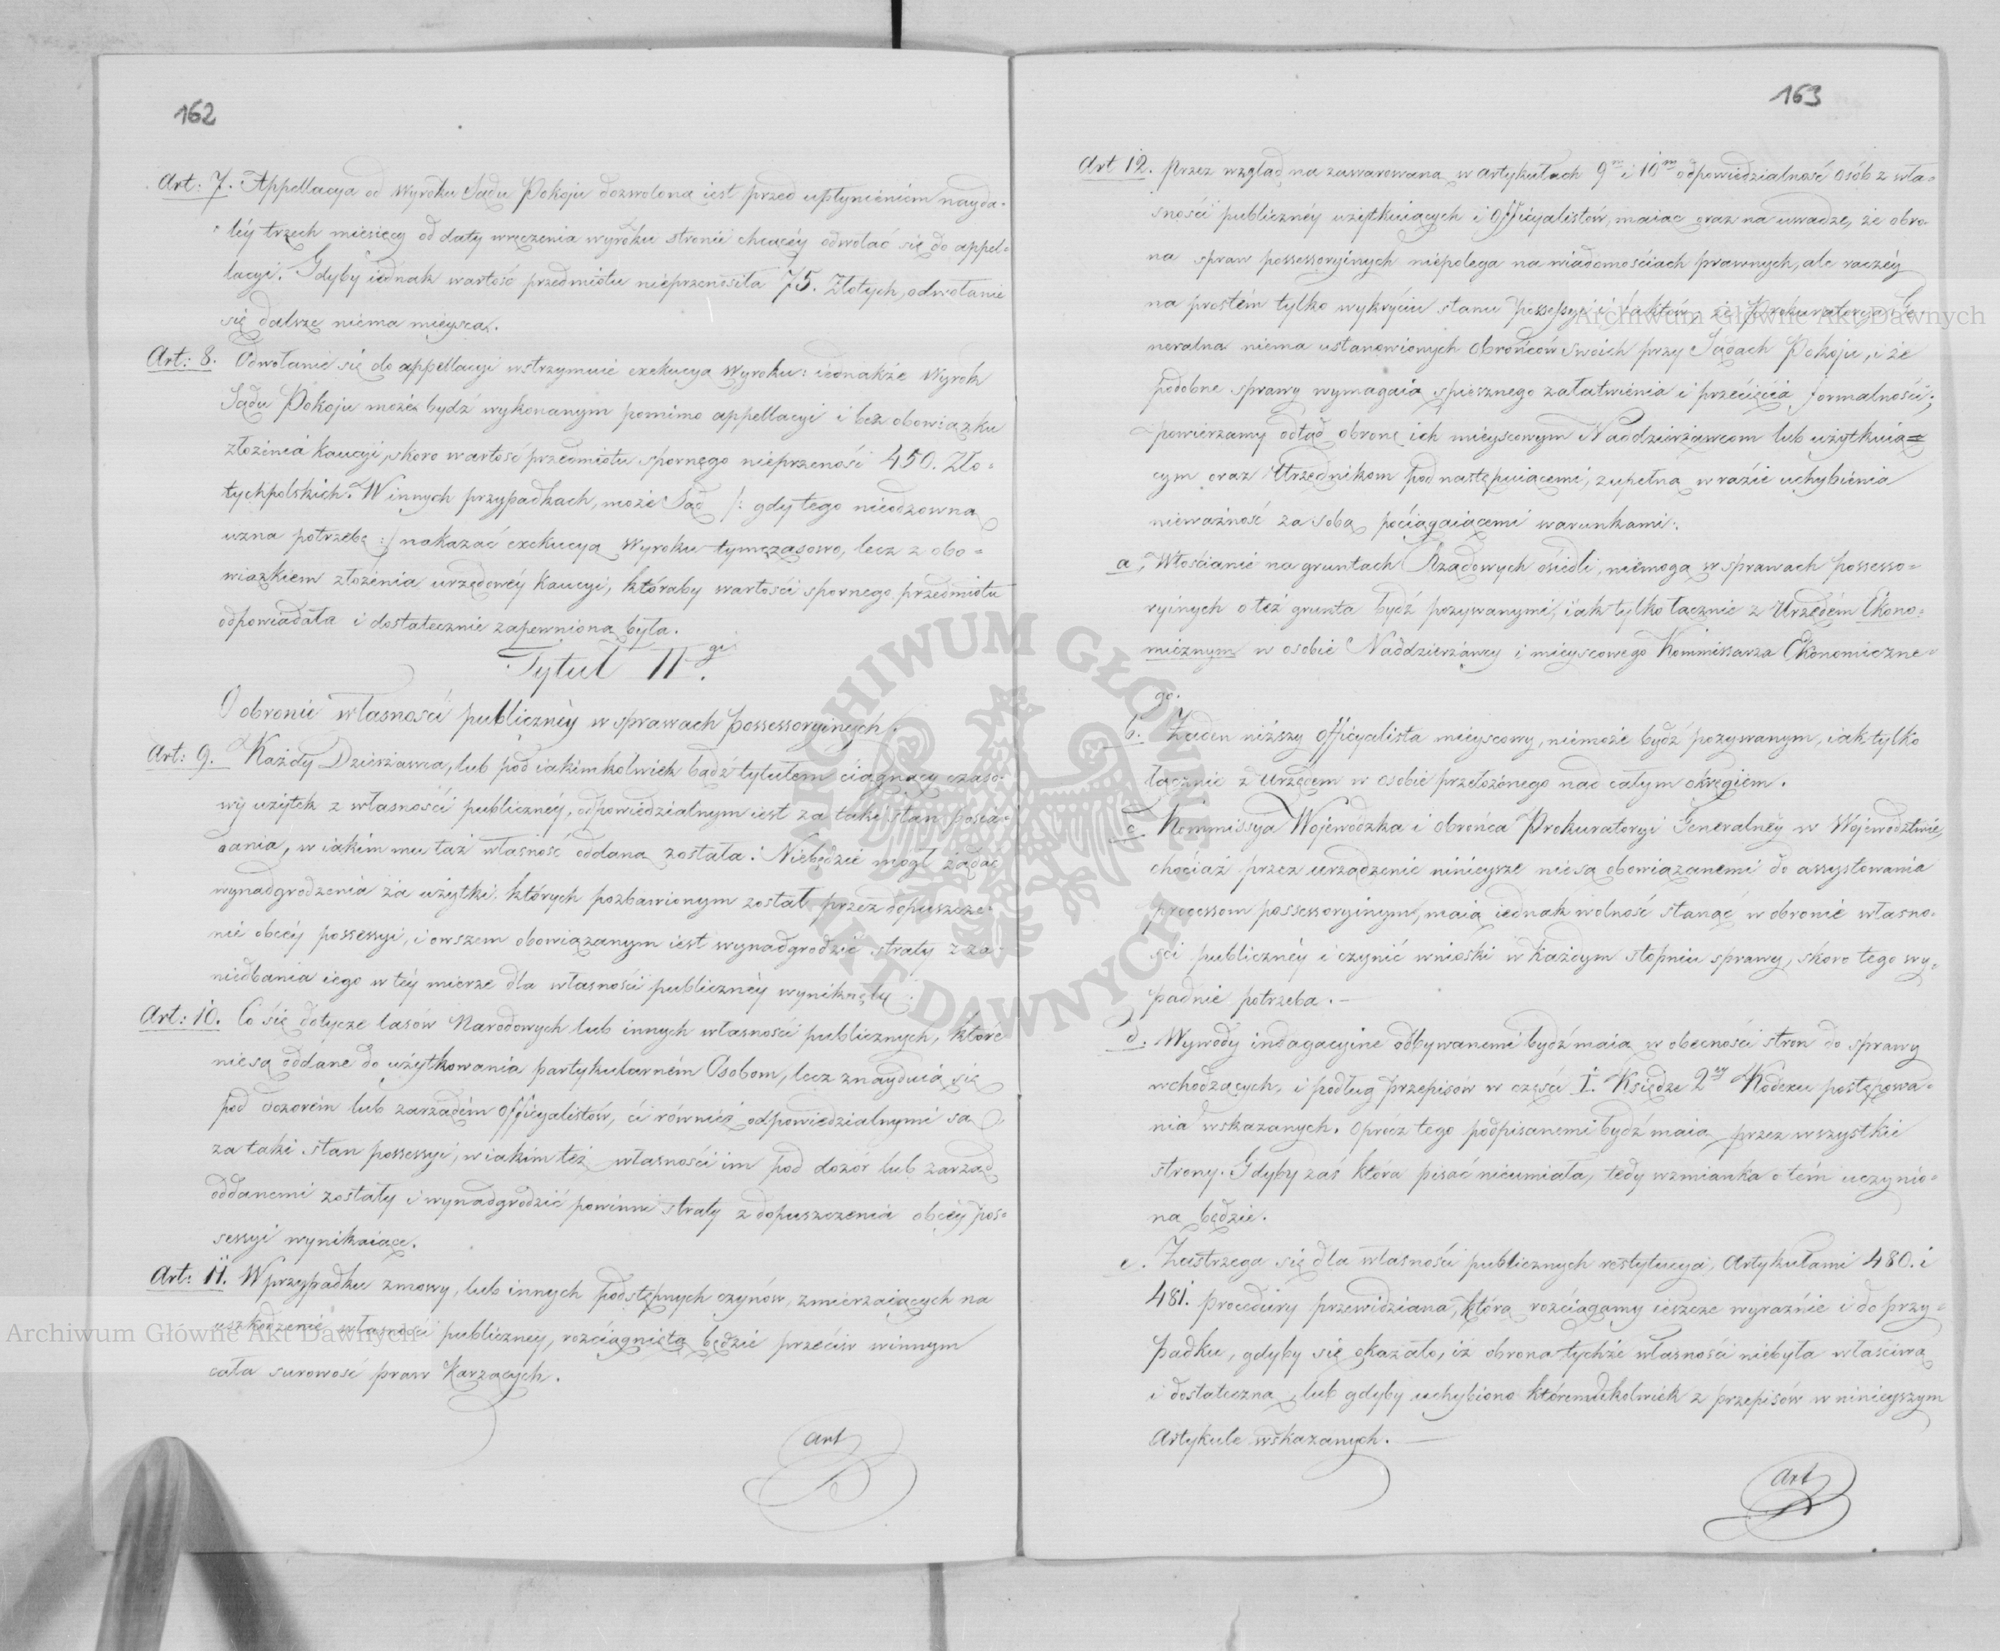 162
Art: 7. Appellacya od Wyroku Sądu Pokoju dozwolona iest przed upłynieniem nayda-
léy trzech miesięcy od daty wręczenia wyroku stronie chcącéy odwołać się do appel-
lacyi. Gdyby iednak wartość przedmiotu nieprzenosiła 75. Złotych, odwołanie
się dalsze niema mieysca.
Art: 8. Odwołanie się do appellacyi wstrzymuie exekucyą Wyroku: iednakże Wyrok
Sądu Pokoju może bydź wykonanym pomimo appellacyi i bez obowiązku
złożenia kaucyi, skoro wartość przedmiotu spornego nieprzenosi 450. Zło-
tychpolskich. W innych przypadkach, może Sąd /: gdy tego nieodzowną
uzna potrzebę :/ nakazać exekucyą Wyroku tymczasowo, lecz z obo-
wiązkiem złożenia urzędowéy kaucyi, któraby wartości spornego przedmiotu
odpowiadała i dostatecznie zapewnioną była.
Tytuł II gi.
O obronie własności publicznéy w sprawach possessoryinych.
Art: 9. Każdy Dzierżawca, lub pod iakimkolwiek bądź tytułem ciągnący czaso-
wy użytek z własności publicznéy, odpowiedzialnym iest za taki stan posia-
dania, w iakim mu taż własność oddana została. Niebędzie mógł żądać
wynadgrodzenia za użytki, których pozbawionym został przez dopuszcze-
nie obcéy possessyi, i owszem obowiązanym iest wynadgrodzić straty z za-
niedbania iego w téy mierze dla własności publicznéy wynikłe.
Art: 10. Co się dotycze lasów Narodowych lub innych własności publicznych, które
niesą oddane do użytkowania partykularném Osobom, lecz znayduią się
pod dozorem lub zarządem officyalistów, ci również odpowiedzialnymi są
za taki stan possessyi, w iakim też własności im pod dozór lub zarząd
oddanemi zostały i wynadgrodzić powinni straty z dopuszczenia obcéy pos-
sessyi wynikaiące.
Art: 11. W przypadku zmowy, lub innych podstępnych czynów, zmierzaiących na
uszkodzenie własności publicznéy, rozciągniętą będzie przeciw winnym
cała surowość praw karzących.
Art
163
Art 12. Przez wzgląd na zawarowaną w artykułach 9m i 10m odpowiedzialność osób z wła-
sności publicznéy użytkuiących i Officyalistów, maiąc oraz na uwadze, że obro-
na spraw possessoryinych niepolega na wiadomościach prawnych, ale raczéy
na prostém tylko wykryciu stanu possessyi i faktów, że Prokuratorya Ge-
neralna niema ustanowionych Obrońców swoich przy Sądach Pokoju, i że
podobne sprawy wymagaią spiesznego załatwienia i przecięcia formalności;
powierzamy odtąd obronę ich mieyscowym Naddzierżawcom lub użytkuią-
cym oraz Urzędnikom pod następuiącemi, zupełną w razie uchybienia
nieważność za sobą pociągaiącemi warunkami:
a, Włościanie na gruntach Rządowych osiedli, niemogą w sprawach possesso-
ryinych o też grunta bydź pozywanymi, iak tylko łącznie z Urzędem Ekono-
micznym w osobie Naddzierżawcy i mieyscowego Kommissarza Ekonomiczne-
go.
b. Żaden niższy Officyalista mieyscowy, niemoże bydź pozywanym, iak tylko
łącznie z Urzędem w osobie przełożonego nad całym okręgiem.
c Kommissya Wojewódzka i obrońca Prokuratoryi Generalnéy w Województwie,
chociaż przez urządzenie ninieysze niesą obowiązanemi do assystowania
processom possessoryinym, maią iednak wolność stanąć w obronie własno-
ści publicznéy i czynić wnioski w każdym stopniu sprawy, skoro tego wy-
padnie potrzeba.
d. Wywody indagacyine odbywanemi bydź maią w obecności stron do sprawy
wchodzących, i podług przepisów w części I. Księdze 2éy Kodexu postępowa-
nia wskazanych. Oprócz tego podpisanemi bydź maią przez wszystkie
strony. Gdyby zaś która pisać nieumiała, tedy wzmianka o tém uczynio-
na będzie.
e. Zastrzega się dla własności publicznych restytucya, Artykułami 480. i
481. procedury przewidziana, którą rozciągamy ieszcze wyraźnie i do przy-
padku, gdyby się okazało, iż obrona tychże własności niebyła właściwą
i dostateczną, lub gdyby uchybiono któremukolwiek z przepisów w ninieyszym
Artykule wskazanych.
Art
Archiwum Główne Akt Dawnych
Archiwum Główne Akt Dawnych
ARCHIWUM GŁÓWNE AKT DAWNYCH